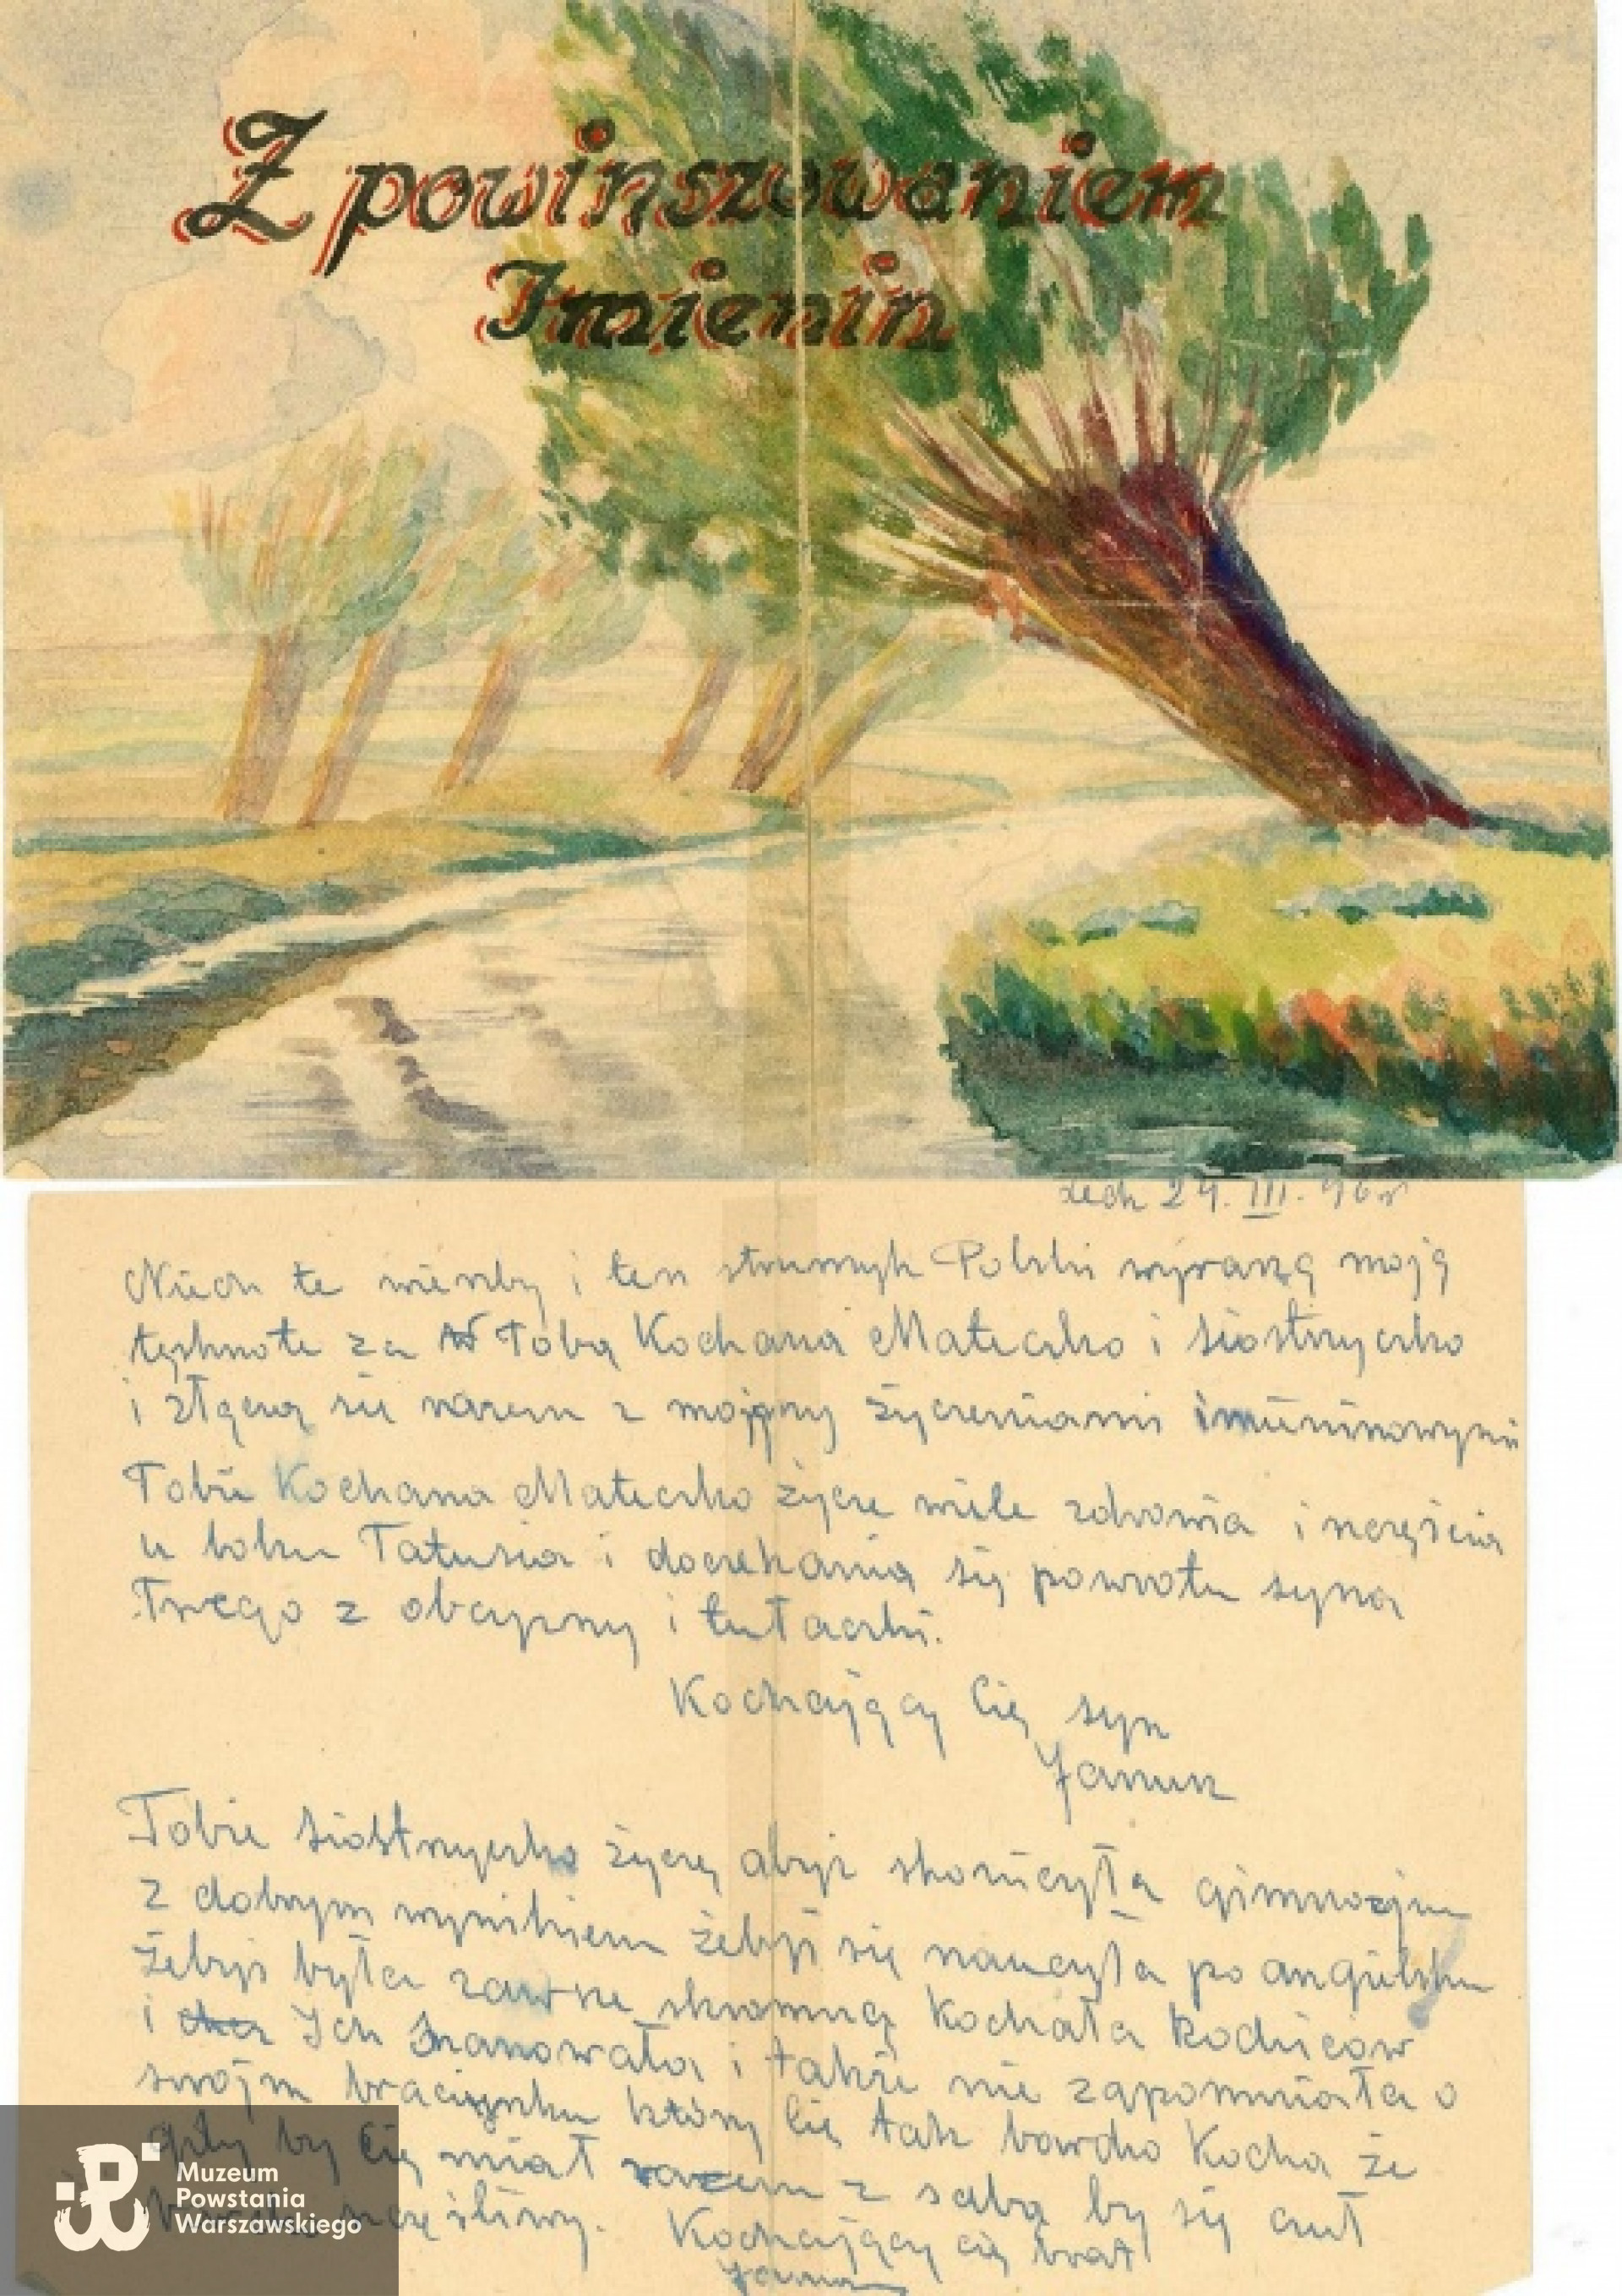 Z powinszowaniem
Imienin
Lech 24. III. 46 r
Niech te wierzby i ten strumyk Polski wyrażą moją
tęsknote za Tobą Kochana Mateczko i siostrzyczko
i złączą sie razem z mojemy życzeniami imieninowymi
Tobie Kochana Mateczko życze wiele zdrowia i szczęścia
u boku Tatusia i doczekania się powrotu syna
Twego z obczyzny i tułaczki.
Kochający Cię syn
Janusz
Tobie siostrzyczko życzę abyś skończyła gimnazjum
z dobrym wynikiem żebyś się nauczyła po angielsku
żebyś była zawsze skromną kochała Rodziców
i Ich szanowała i także nie zapomniała o
swojm braciszku który Cię tak bardzo Kocha że
gdy by Cię miał razem z sobą by się czuł
szczęśliwy. Kochający cię brat
Janusz
Muzeum
Powstania
Warszawskiego